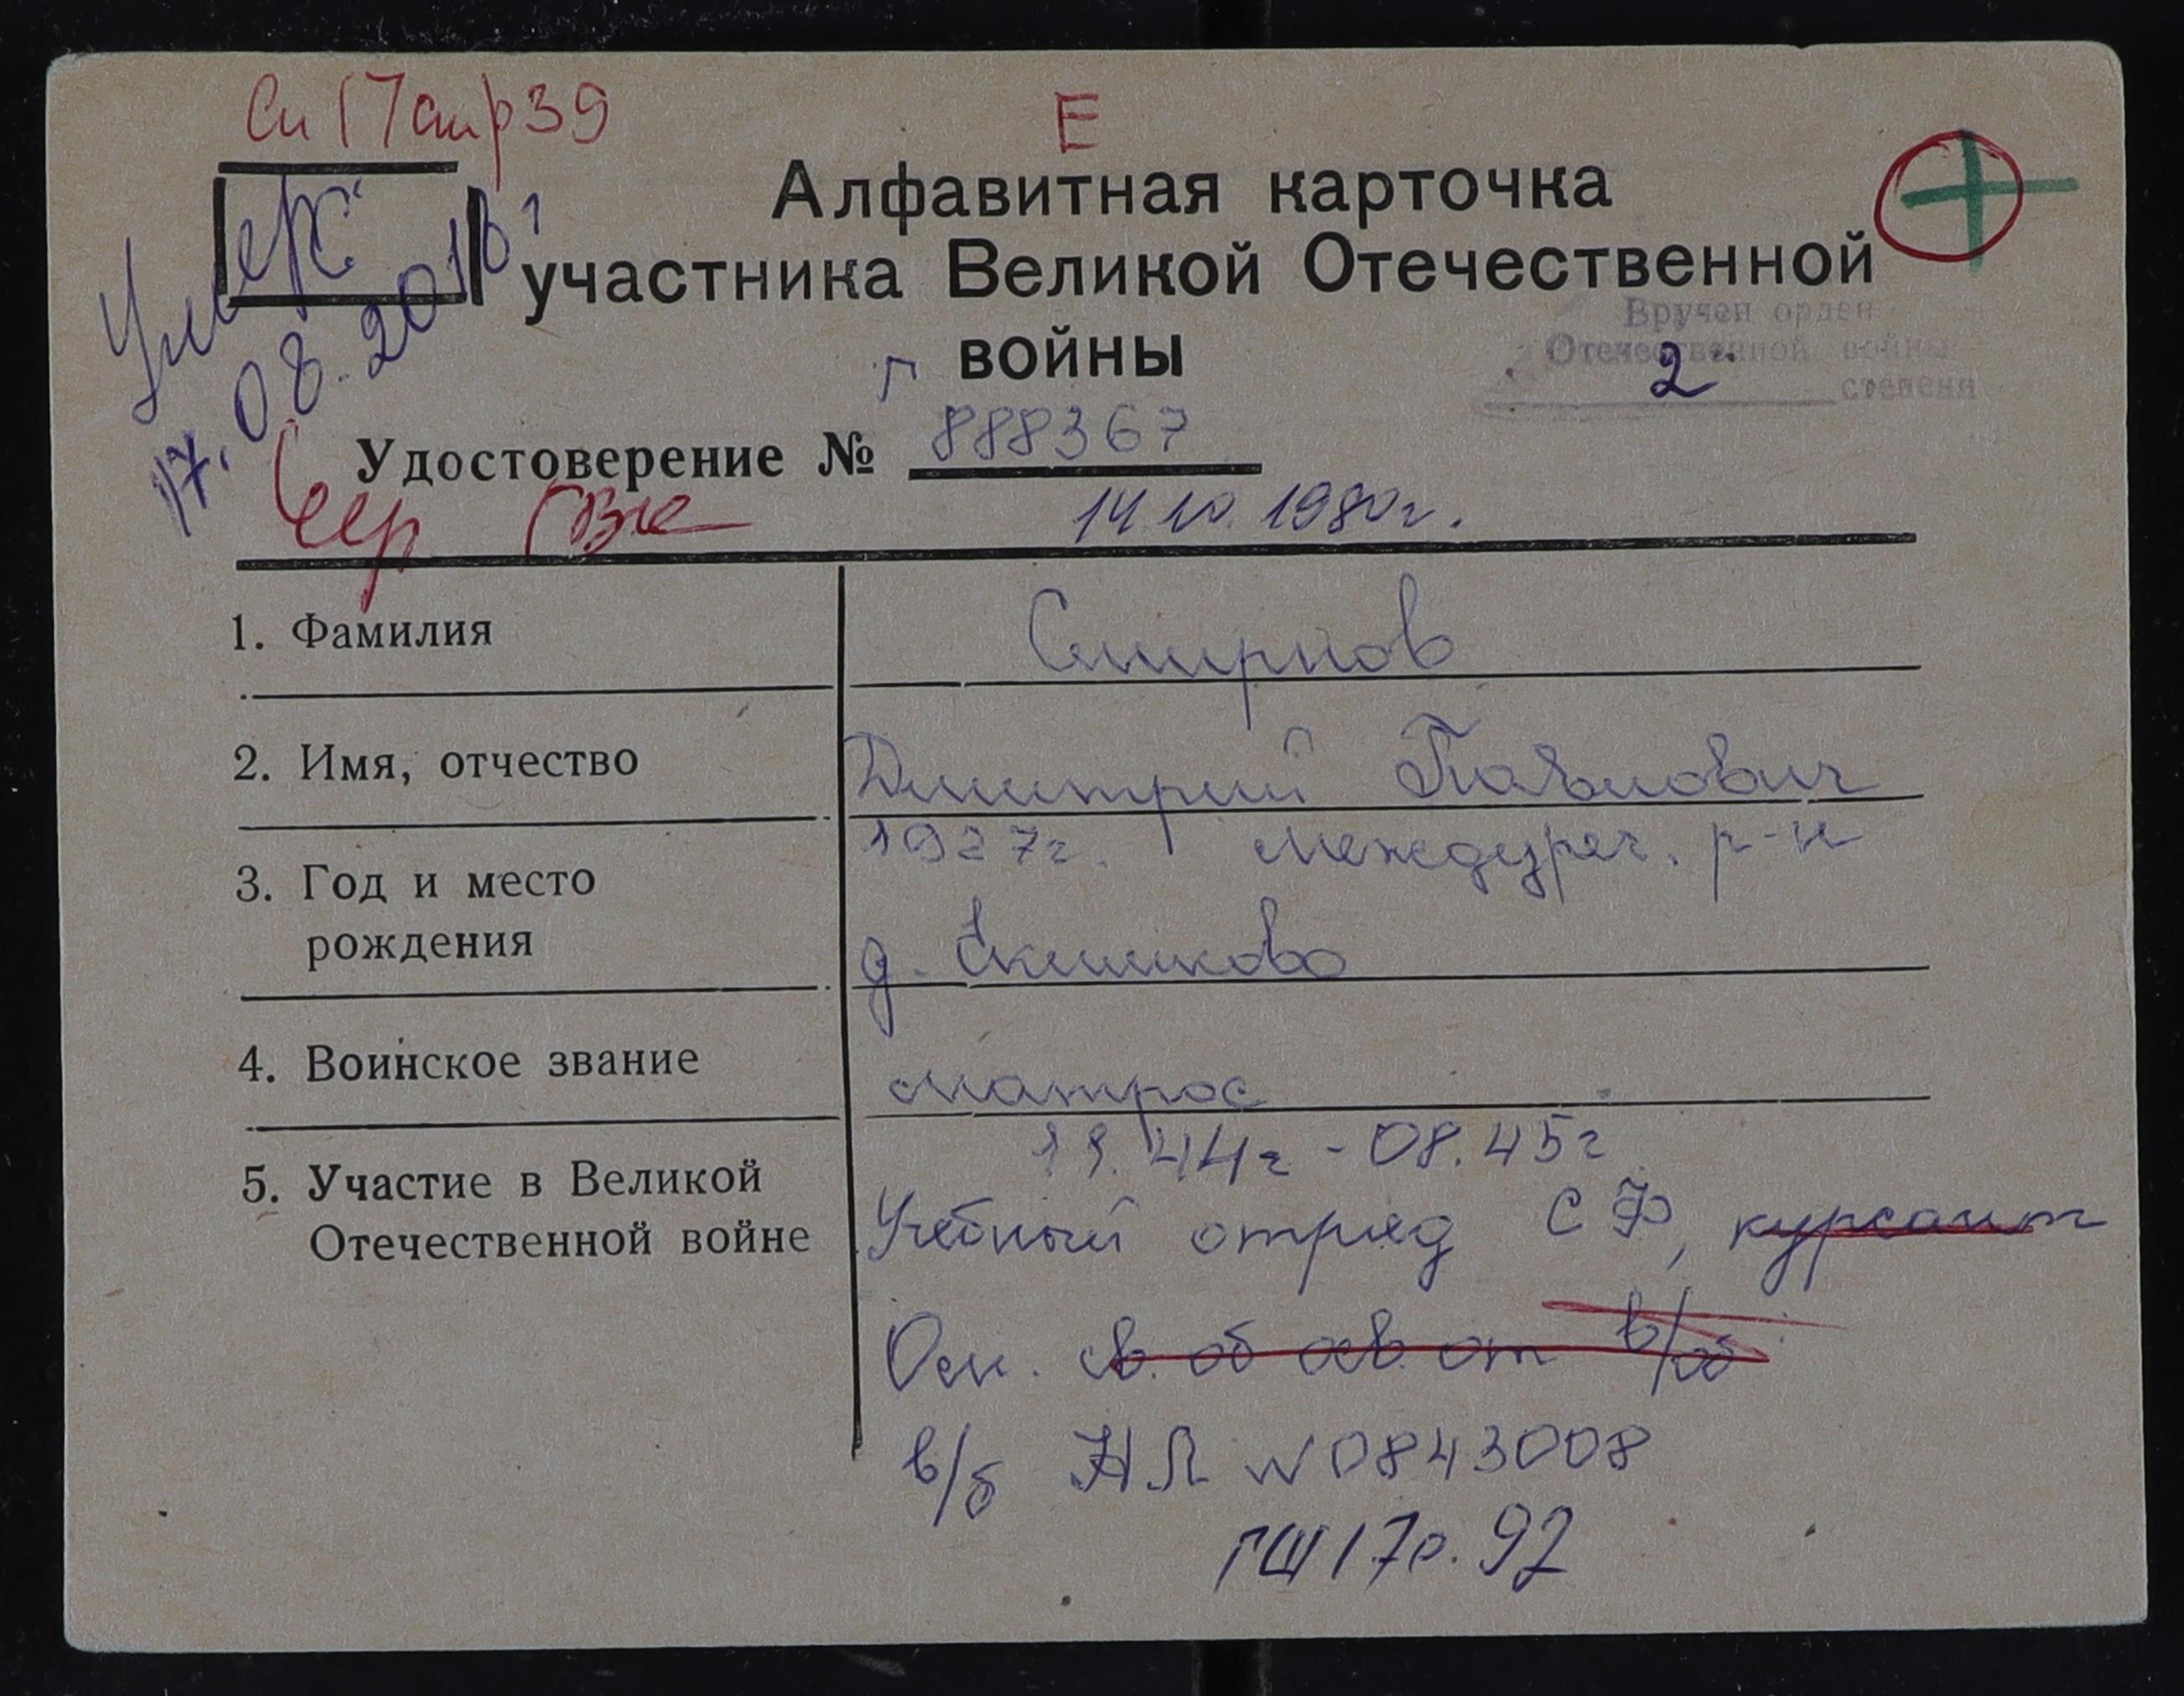 Сп 17 стр 39
Е
Умер
17.08.2010г
Алфавитная карточка
участника Великой Отечественной
войны
Вручен орден
Отечественной войны
2 степени
Удостоверение № Г 888367
14.10.1980г.
Сер
1. Фамилия Смирнов
2. Имя, отчество Дмитрий Павлович
3. Год и место 1927г. Междуреч. р-н
рождения д. Екишково
4. Воинское звание матрос
5. Участие в Великой 11.44г - 08.45г
Отечественной войне Учебный отряд СФ, курсант
Осн. св. об осв. от в/об
в/б НЛ №0843008
ГШ 170.92